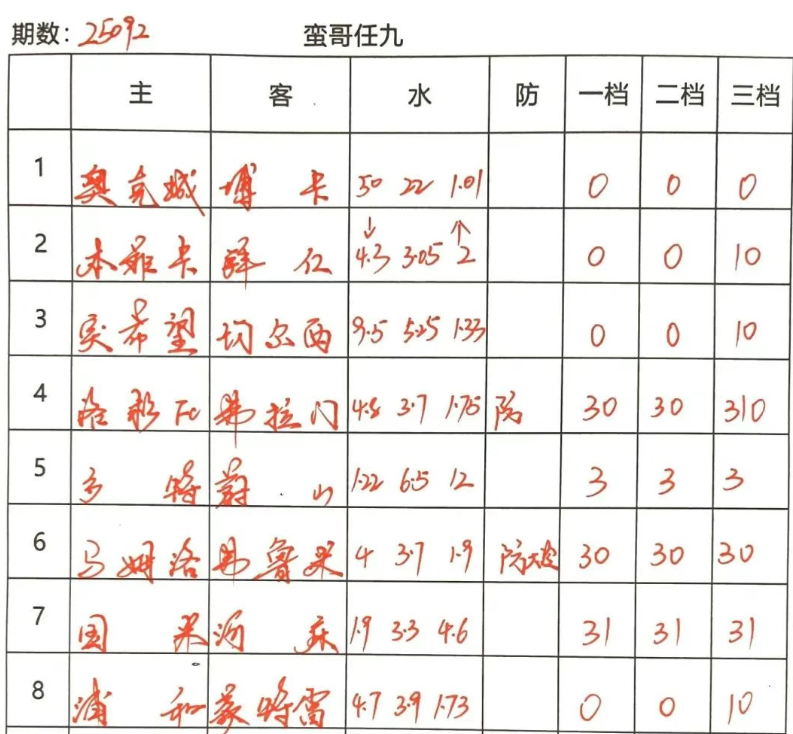 期数: 25092 蛮哥任九
主 客 水 防 一档 二档 三档
1 奥克城 博卡 50 22 1.01 0 0 0
2 本菲卡 拜仁 4.3↓ 3.05 2↑ 0 0 10
3 突希望 切尔西 9.5 5.25 1.33 0 0 10
4 洛杉FC 弗拉门 4.5 3.7 1.75 防 30 30 310
5 多特 蔚山 1.22 6.5 12 3 3 3
6 马姆洛 弗鲁米 4 3.7 1.9 防 30 30 30
7 国米 河床 1.9 3.3 4.6 31 31 31
8 浦和 蒙特雷 4.7 3.9 1.73 0 0 10